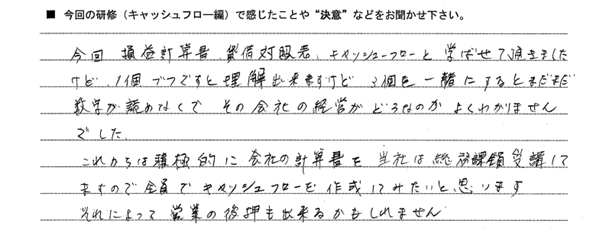 ■ 今回の研修（キャッシュフロー編）で感じたことや“決意”などをお聞かせ下さい。
今回 損益計算書、貸借対照表、キャッシュフローと学ばせて頂きました
けど、1個づつですと理解出来ますけど 3個を一緒にするとまだまだ
数字が読めなくて その会社の経営がどうなのかよくわかりません
でした。
これからは積極的に会社の計算書を当社は総務課願受講して
ますので全員でキャッシュフローを作成してみたいと思います
それによって営業の後押も出来るかもしれません